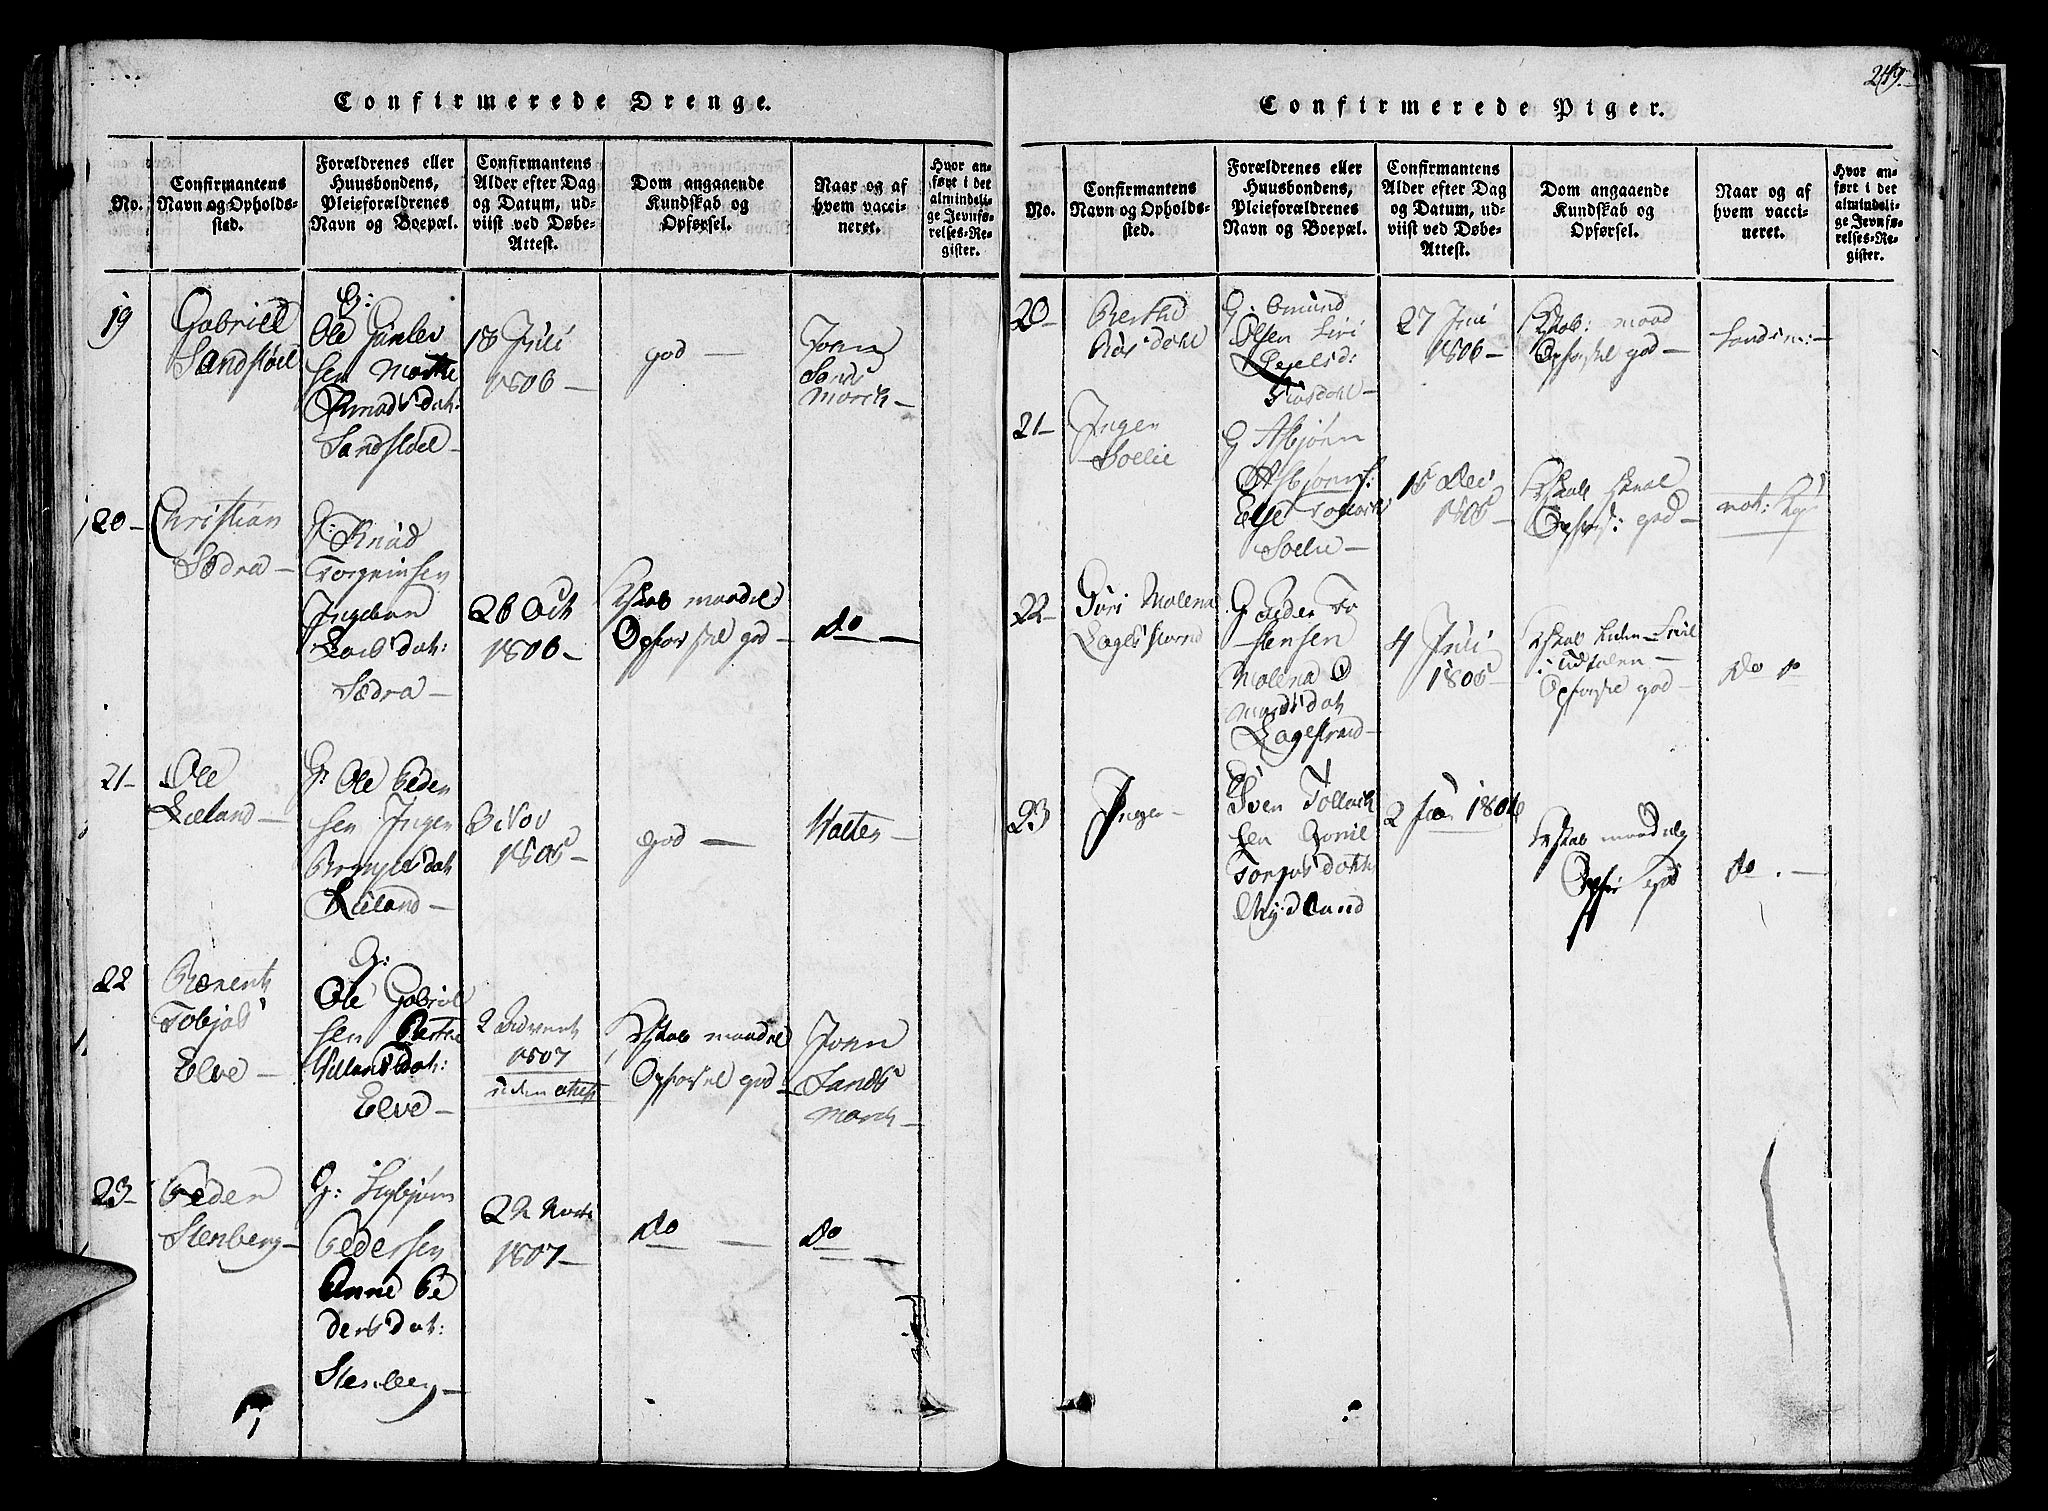 249.
Confirmerede Drenge.
No.
Confirmantens
Navn og Opholds-
sted.
Forældrenes eller
Huusbondens,
Pleieforældrenes
Navn og Boepæl.
Confirmantens
Alder efter Dag
og Datum, ud-
viist ved Døbe-
Attest.
Dom angaaende
Kundskab og
Opførsel.
Naar og af
hvem vacci-
neret.
Hvor an-
ført i det
almindeli-
ge Jevnfø-
relses-Re-
gister.
19
Gabriel
Sandstøel
G:
Ole
sen
Sandstøel —
18 Juli
1806 —
god —
Jonn
Sands
March —
20 —
Christian
Sædra —
G: Knud
Torgeirsen
Ingebor
Larsdat:
Sædra —
26 Oct
1806 —
Kskab maadel:
Opførsel god —
do —
21 —
Ole
Lieland —
G: Ole Peder
sen Inger
Lieland —
3 Nov
1805 —
god —
Walter —
22
Tobjas
Elve —
G:
Ole Gabriel
sen Berthe
Elve —
2 Advent
1807
uden attest
Kskab maadel
Opførsel god —
Jonn
Sands
March —
23 —
Peder
Stenberg —
G: Sigbjørn
Pedersen
Anne Pe
dersdat:
Stenberg —
22 Novbr
1807 —
do —
do —
Confirmerede Piger.
No.
Confirmantens
Navn og Opholds-
sted.
Forældrenes eller
Huusbondens,
Pleieforældrenes
Navn og Boepæl.
Confirmantens
Alder efter Dag
og Datum, ud-
viist ved Døbe-
Attest.
Dom angaaende
Kundskab og
Opførsel.
Naar og af
hvem vacci-
neret.
Hvor an-
ført i det
almindeli-
ge Jevnfø-
relses-Re-
gister.
20 —
Berthe
Røsdahl
G: Omund
Olsen Siri
Røsdahl —
27 Juli
1806 —
Kskab: maad
Opførsel god —
Sandsm: —
21 —
Inger
Soelie
G Asbjørn
Asbjørns:
Else
Soelie —
15 Dec
1805 —
Kskab
Opførs: god —
nat: Kop
22 —
Siri Malena
Lagestrand
G Peder To
stensen
Malena O
mundsdat
Lagestrand —
4 Juli
1805 —
Kskab liden — Smil
i udtalen —
Opførsel god —
do
23
Inger —
G
Sven Tollach
sen Gunil
Torgersdatt
2 Jan 1806
Kskab maadelig
Opfør god
do . —